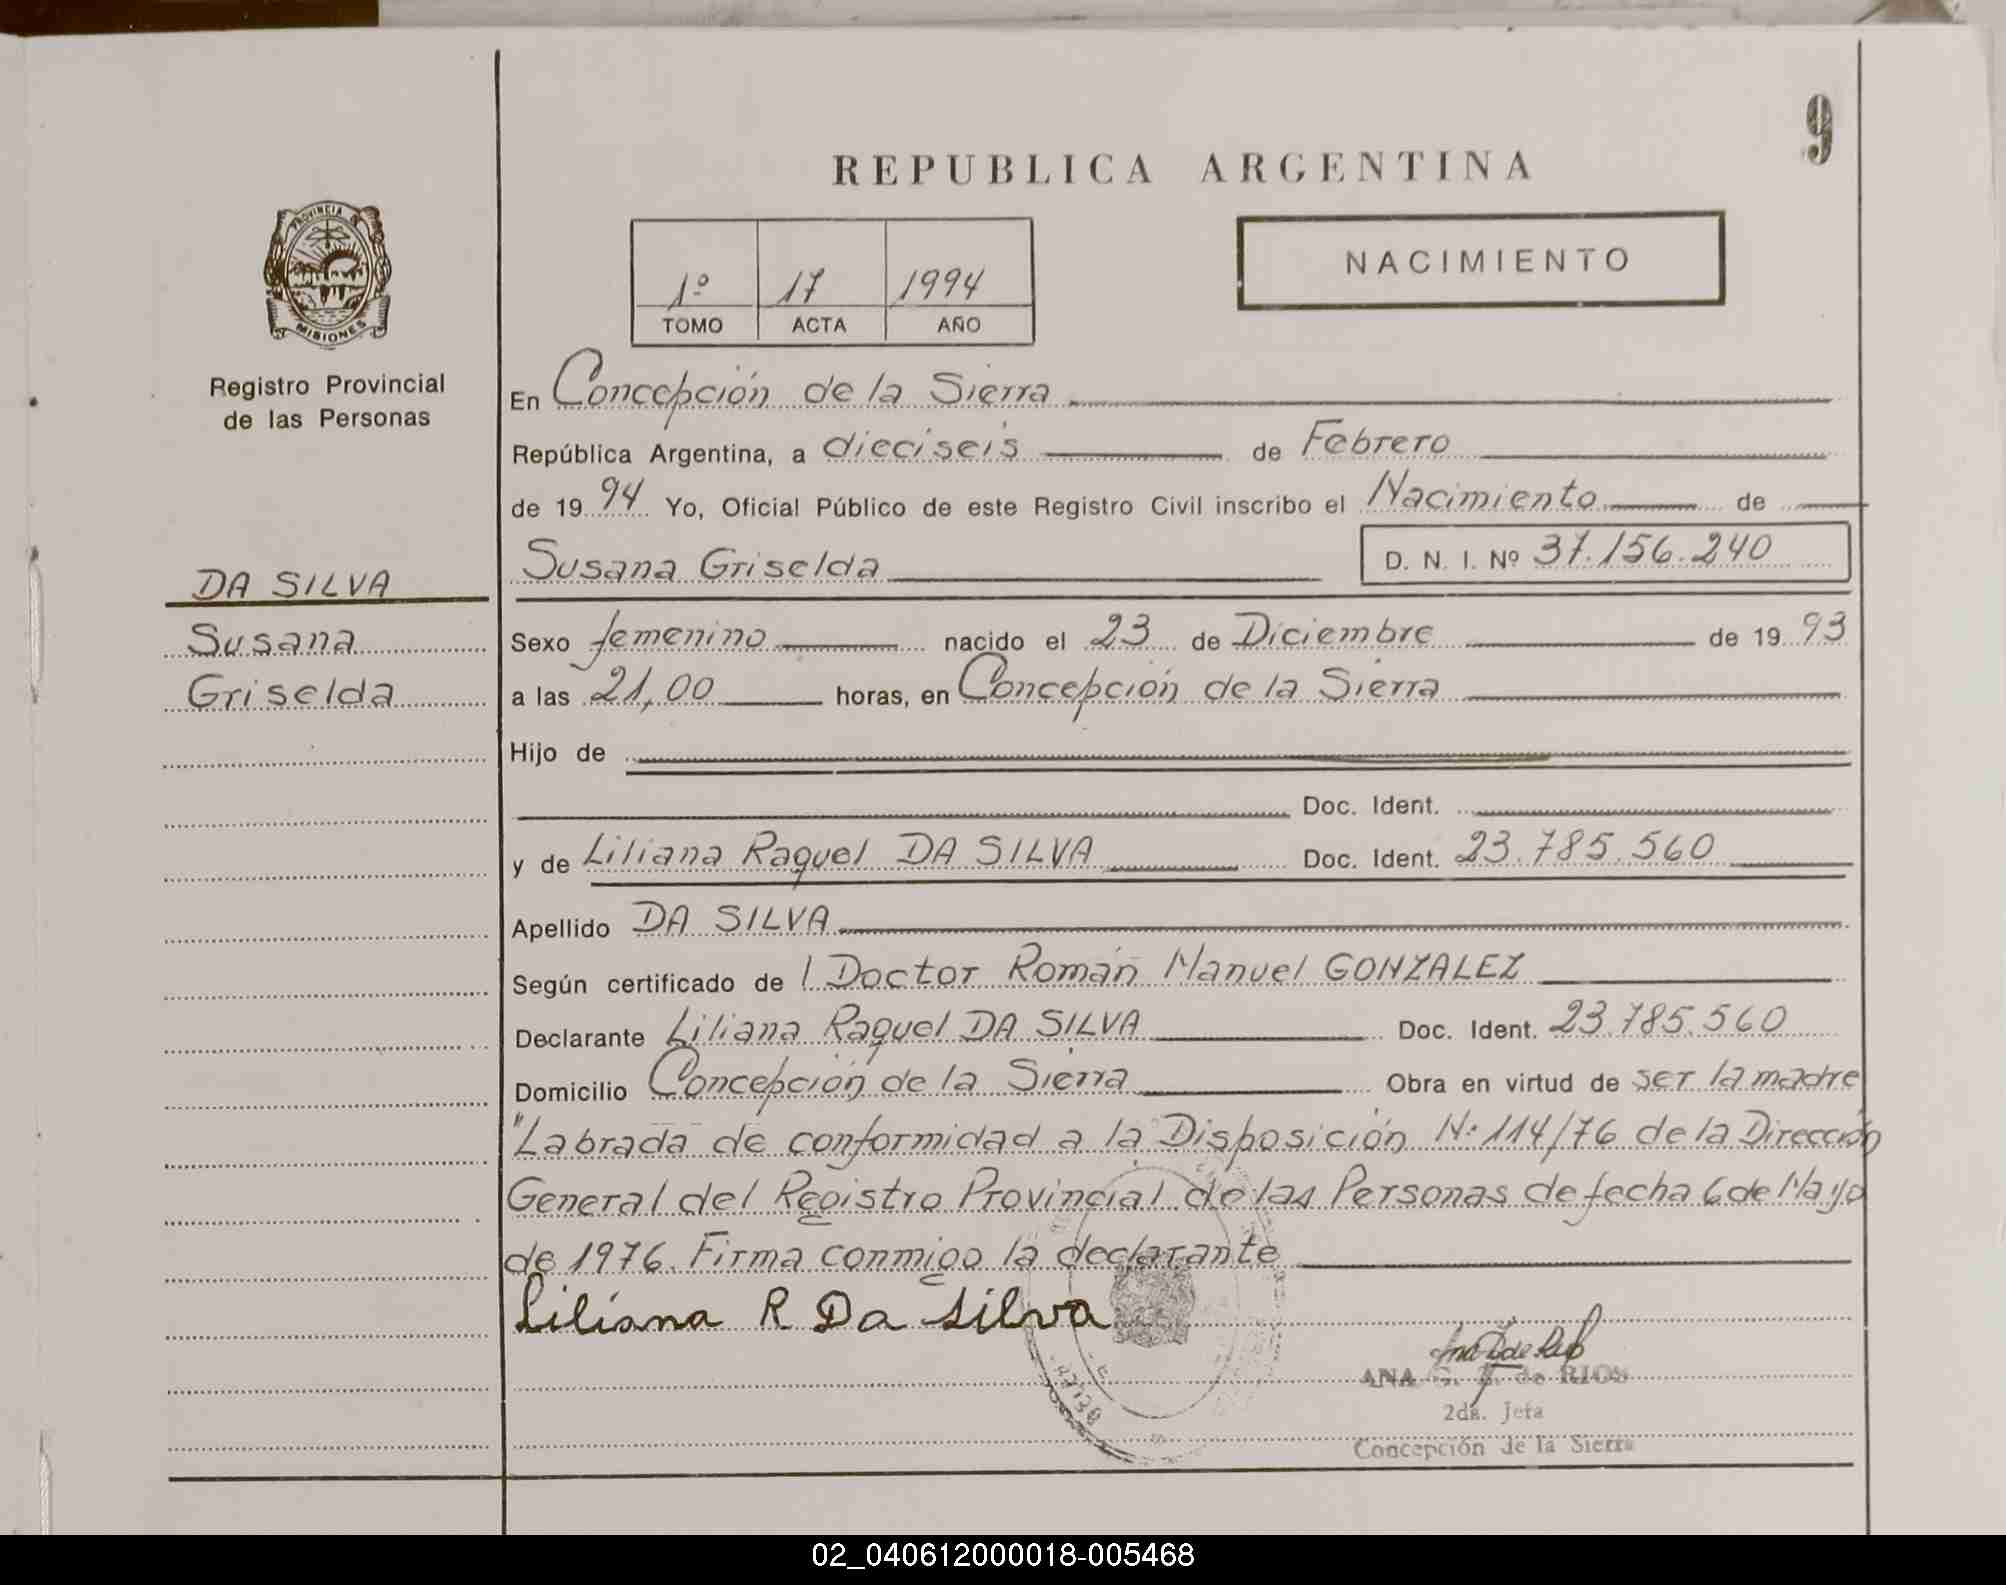 9
REPUBLICA ARGENTINA
PROVINCIA DE
MISIONES
Registro Provincial
de las Personas
1º 17 1994
TOMO ACTA AÑO
NACIMIENTO
En Concepción de la Sierra
República Argentina, a dieciseis de Febrero
de 19 94 Yo, Oficial Público de este Registro Civil inscribo el Nacimiento de
Susana Griselda D. N. I. Nº 37.156.240
DA SILVA
Susana
Griselda
Sexo femenino nacido el 23 de Diciembre de 19 93
a las 21,00 horas, en Concepción de la Sierra
Hijo de
Doc. Ident.
y de Liliana Raquel DA SILVA Doc. Ident. 23.785.560
Apellido DA SILVA
Según certificado de l Doctor Román Manuel GONZALEZ
Declarante Liliana Raquel DA SILVA Doc. Ident. 23.785.560
Domicilio Concepción de la Sierra Obra en virtud de ser la madre
"Labrada de conformidad a la Disposición N: 114/76 de la Dirección
General del Registro Provincial de las Personas de fecha 6 de Mayo
de 1976. Firma conmigo la declarante
Liliana R Da Silva
ANA G. de RIOS
2da. Jefa
Concepción de la Sierra
02_040612000018-005468